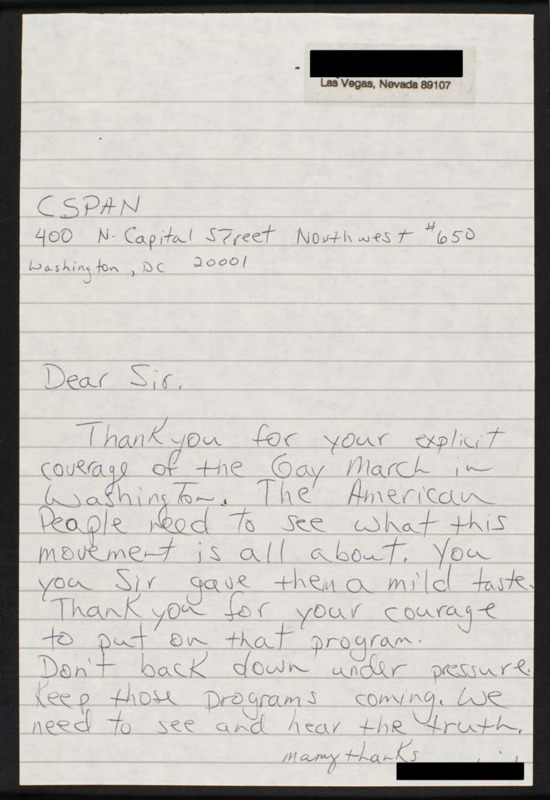 Las Vegas, Nevada 89107
CSPAN
400 N. Capital STreet Northwest #650
Washington, DC 20001
Dear Sir.
Thank you for your explicit
coverage of the Gay March in
Washington. The American
People need to see what this
movement is all about. You
you Sir gave them a mild taste.
Thank you for your courage
to put on that program.
Don't back down under pressure.
Keep those programs coming. We
need to see and hear the truth.
many thanks